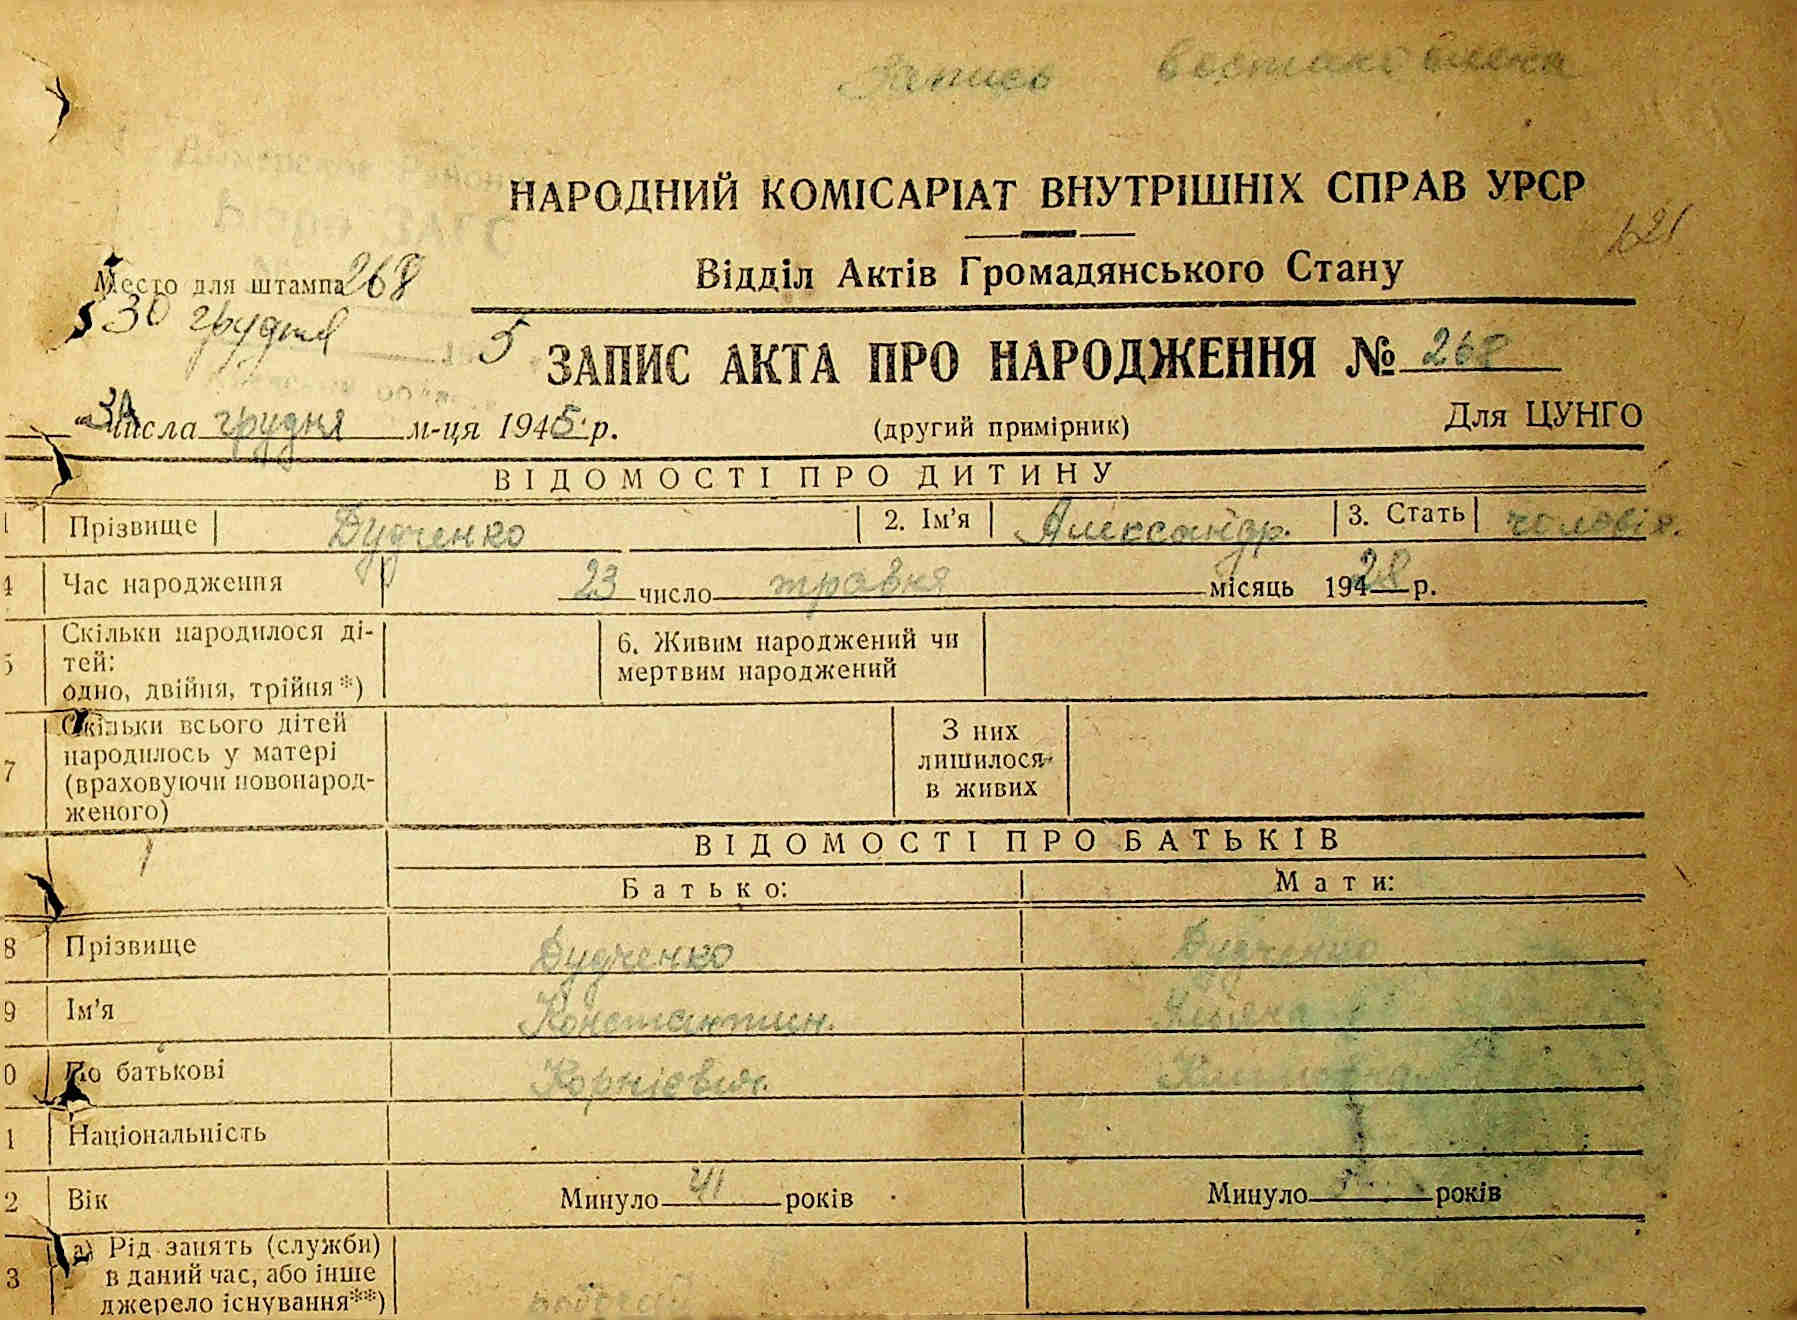 Запись востановлена
НАРОДНИЙ КОМІСАРІАТ ВНУТРІШНІХ СПРАВ УРСР
121
Відділ Актів Громадянського Стану
Место для штампа 268
30 грудня 5
ЗАПИС АКТА ПРО НАРОДЖЕННЯ № 268
числа грудня м-ця 1945 р.
(другий примірник)
Для ЦУНГО
ВІДОМОСТІ ПРО ДИТИНУ
1 Прізвище Дудченко 2. Ім'я Александр. 3. Стать чоловіч.
4 Час народження 23 число травня місяць 194 28 р.
5 Скільки народилося ді-
тей:
одно, двійня, трійня*)
6. Живим народжений чи
мертвим народжений
7 Скільки всього дітей
народилось у матері
(враховуючи новонарод-
женого)
З них
лишилося
в живих
ВІДОМОСТІ ПРО БАТЬКІВ
Батько: Мати:
8 Прізвище Дудченко Дудченко
9 Ім'я Константин.
0 По батькові Корнієвич.
1 Національність
2 Вік Минуло 41 років Минуло років
3 а) Рід занять (служби)
в даний час, або інше
джерело існування**)
робочий